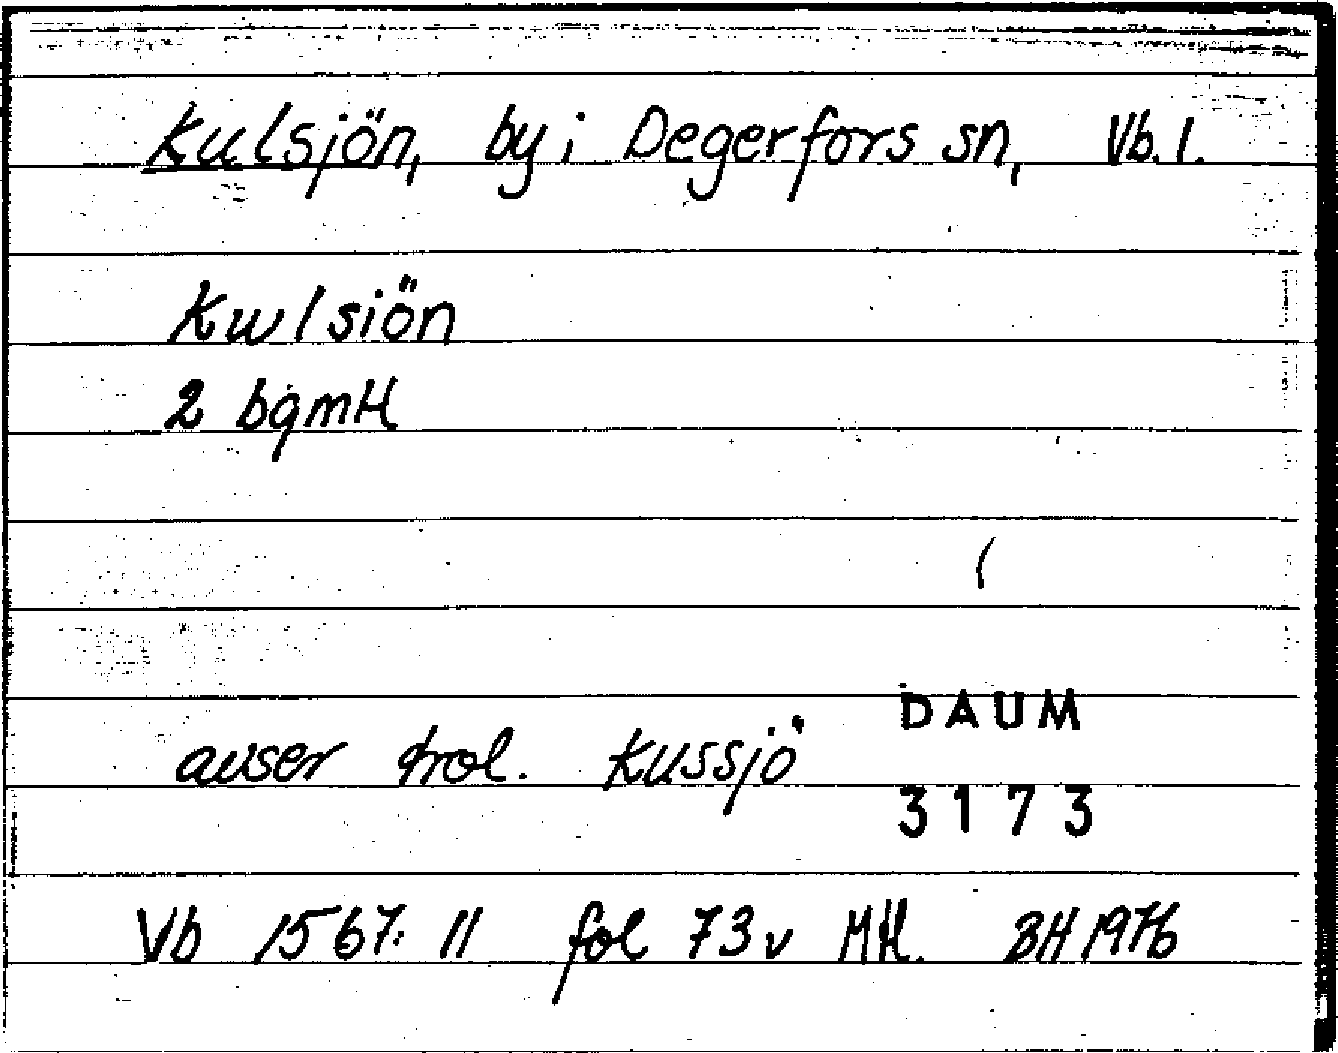 Kulsjön, by i Degerfors sn, Vb. l.
Kwlsiön
2 bgmH
avser trol. Kussjö
DAUM
3173
Vb 1567:11 fol 73v MH. BH 1976